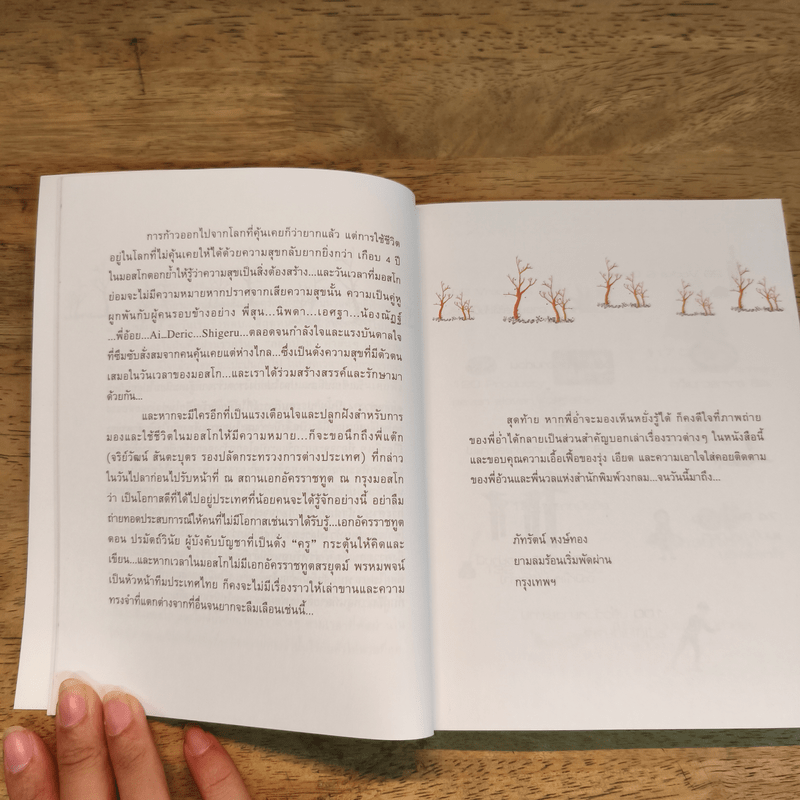 การก้าวออกไปจากโลกที่คุ้นเคยก็ว่ายากแล้ว แต่การใช้ชีวิต
อยู่ในโลกที่ไม่คุ้นเคยให้ได้ด้วยความสุขกลับยากยิ่งกว่า เกือบ 4 ปี
ในมอสโกตอกย้ำให้รู้ว่าความสุขเป็นสิ่งต้องสร้าง...และวันเวลาที่มอสโก
ย่อมจะไม่มีความหมายหากปราศจากเสียความสุขนั้น ความเป็นคู่หู
ผูกพันกับผู้คนรอบข้างอย่าง พี่สุน...นิพดา...เอศฐา...น้องณัฏฐ์
...พี่อ้อย...Ai_Deric...Shigeru...ตลอดจนกำลังใจและแรงบันดาลใจ
ที่ซึมซับสั่งสมจากคนคุ้นเคยแต่ห่างไกล...ซึ่งเป็นดั่งความสุขที่มีตัวตน
เสมอในวันเวลาของมอสโก...และเราได้ร่วมสร้างสรรค์และรักษามา
ด้วยกัน...
และหากจะมีใครอีกที่เป็นแรงเตือนใจและปลูกฝังสำหรับการ
มองและใช้ชีวิตในมอสโกให้มีความหมาย...ก็จะขอนึกถึงพี่แต๊ก
(จริย์วัฒน์ สันตะบุตร รองปลัดกระทรวงการต่างประเทศ) ที่กล่าว
ในวันไปลาก่อนไปรับหน้าที่ ณ สถานเอกอัครราชทูต ณ กรุงมอสโก
ว่า เป็นโอกาสดีที่ได้ไปอยู่ประเทศที่น้อยคนจะได้รู้จักอย่างนี้ อย่าลืม
ถ่ายทอดประสบการณ์ให้คนที่ไม่มีโอกาสเช่นเราได้รับรู้...เอกอัครราชทูต
ดอน ปรมัตถ์วินัย ผู้บังคับบัญชาที่เป็นดั่ง “ครู” กระตุ้นให้คิดและ
เขียน...และหากเวลาในมอสโกไม่มีเอกอัครราชทูตสรยุตม์ พรหมพจน์
เป็นหัวหน้าทีมประเทศไทย ก็คงจะไม่มีเรื่องราวให้เล่าขานและความ
ทรงจำที่แตกต่างจากที่อื่นจนยากจะลืมเลือนเช่นนี้...
สุดท้าย หากพี่อ่ำจะมองเห็นหยั่งรู้ได้ ก็คงดีใจที่ภาพถ่าย
ของพี่อ่ำได้กลายเป็นส่วนสำคัญบอกเล่าเรื่องราวต่างๆ ในหนังสือนี้
และขอบคุณความเอื้อเฟื้อของรุ่ง เอียด และความเอาใจใส่คอยติดตาม
ของพี่อ้วนและพี่นวลแห่งสำนักพิมพ์วงกลม...จนวันนี้มาถึง...
ภัทรัตน์ หงษ์ทอง
ยามลมร้อนเริ่มพัดผ่าน
กรุงเทพฯ